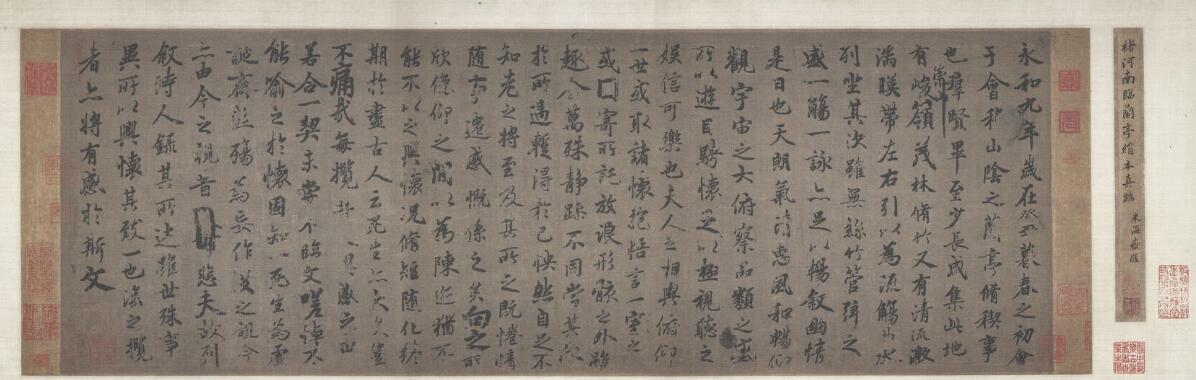 褚河南臨蘭亭絹本真跡 米海岳跋
永和九年歲在癸丑暮春之初會
于會稽山陰之蘭亭脩稧事
也群賢畢至少長咸集此地
有崇山峻領茂林脩竹又有清流激
湍暎帶左右引以為流觴曲水
列坐其次雖無絲竹管弦之
盛一觴一詠亦足以暢敘幽情
是日也天朗氣清惠風和暢仰
觀宇宙之大俯察品類之盛
所以遊目騁懷足以極視聽之
娛信可樂也夫人之相與俯仰
一世或取諸懷抱悟言一室之
或因寄所託放浪形骸之外雖
趣舍萬殊静躁不同當其欣
於所遇蹔得於己怏然自足不
知老之將至及其所之既惓情
隨事遷感慨係之矣向之所
欣俛仰之閒以為陳迹猶不
能不以之興懷況脩短隨化終
期於盡古人云死生亦大矣豈
不痛哉每攬昔人興感之由
若合一契未嘗不臨文嗟悼不
能喻之於懷固知一死生為虛
誕齊彭殤為妄作後之視今
亦由今之視昔悲夫故列
敘時人錄其所述雖世殊事
異所以興懷其致一也後之攬
者亦將有感於斯文